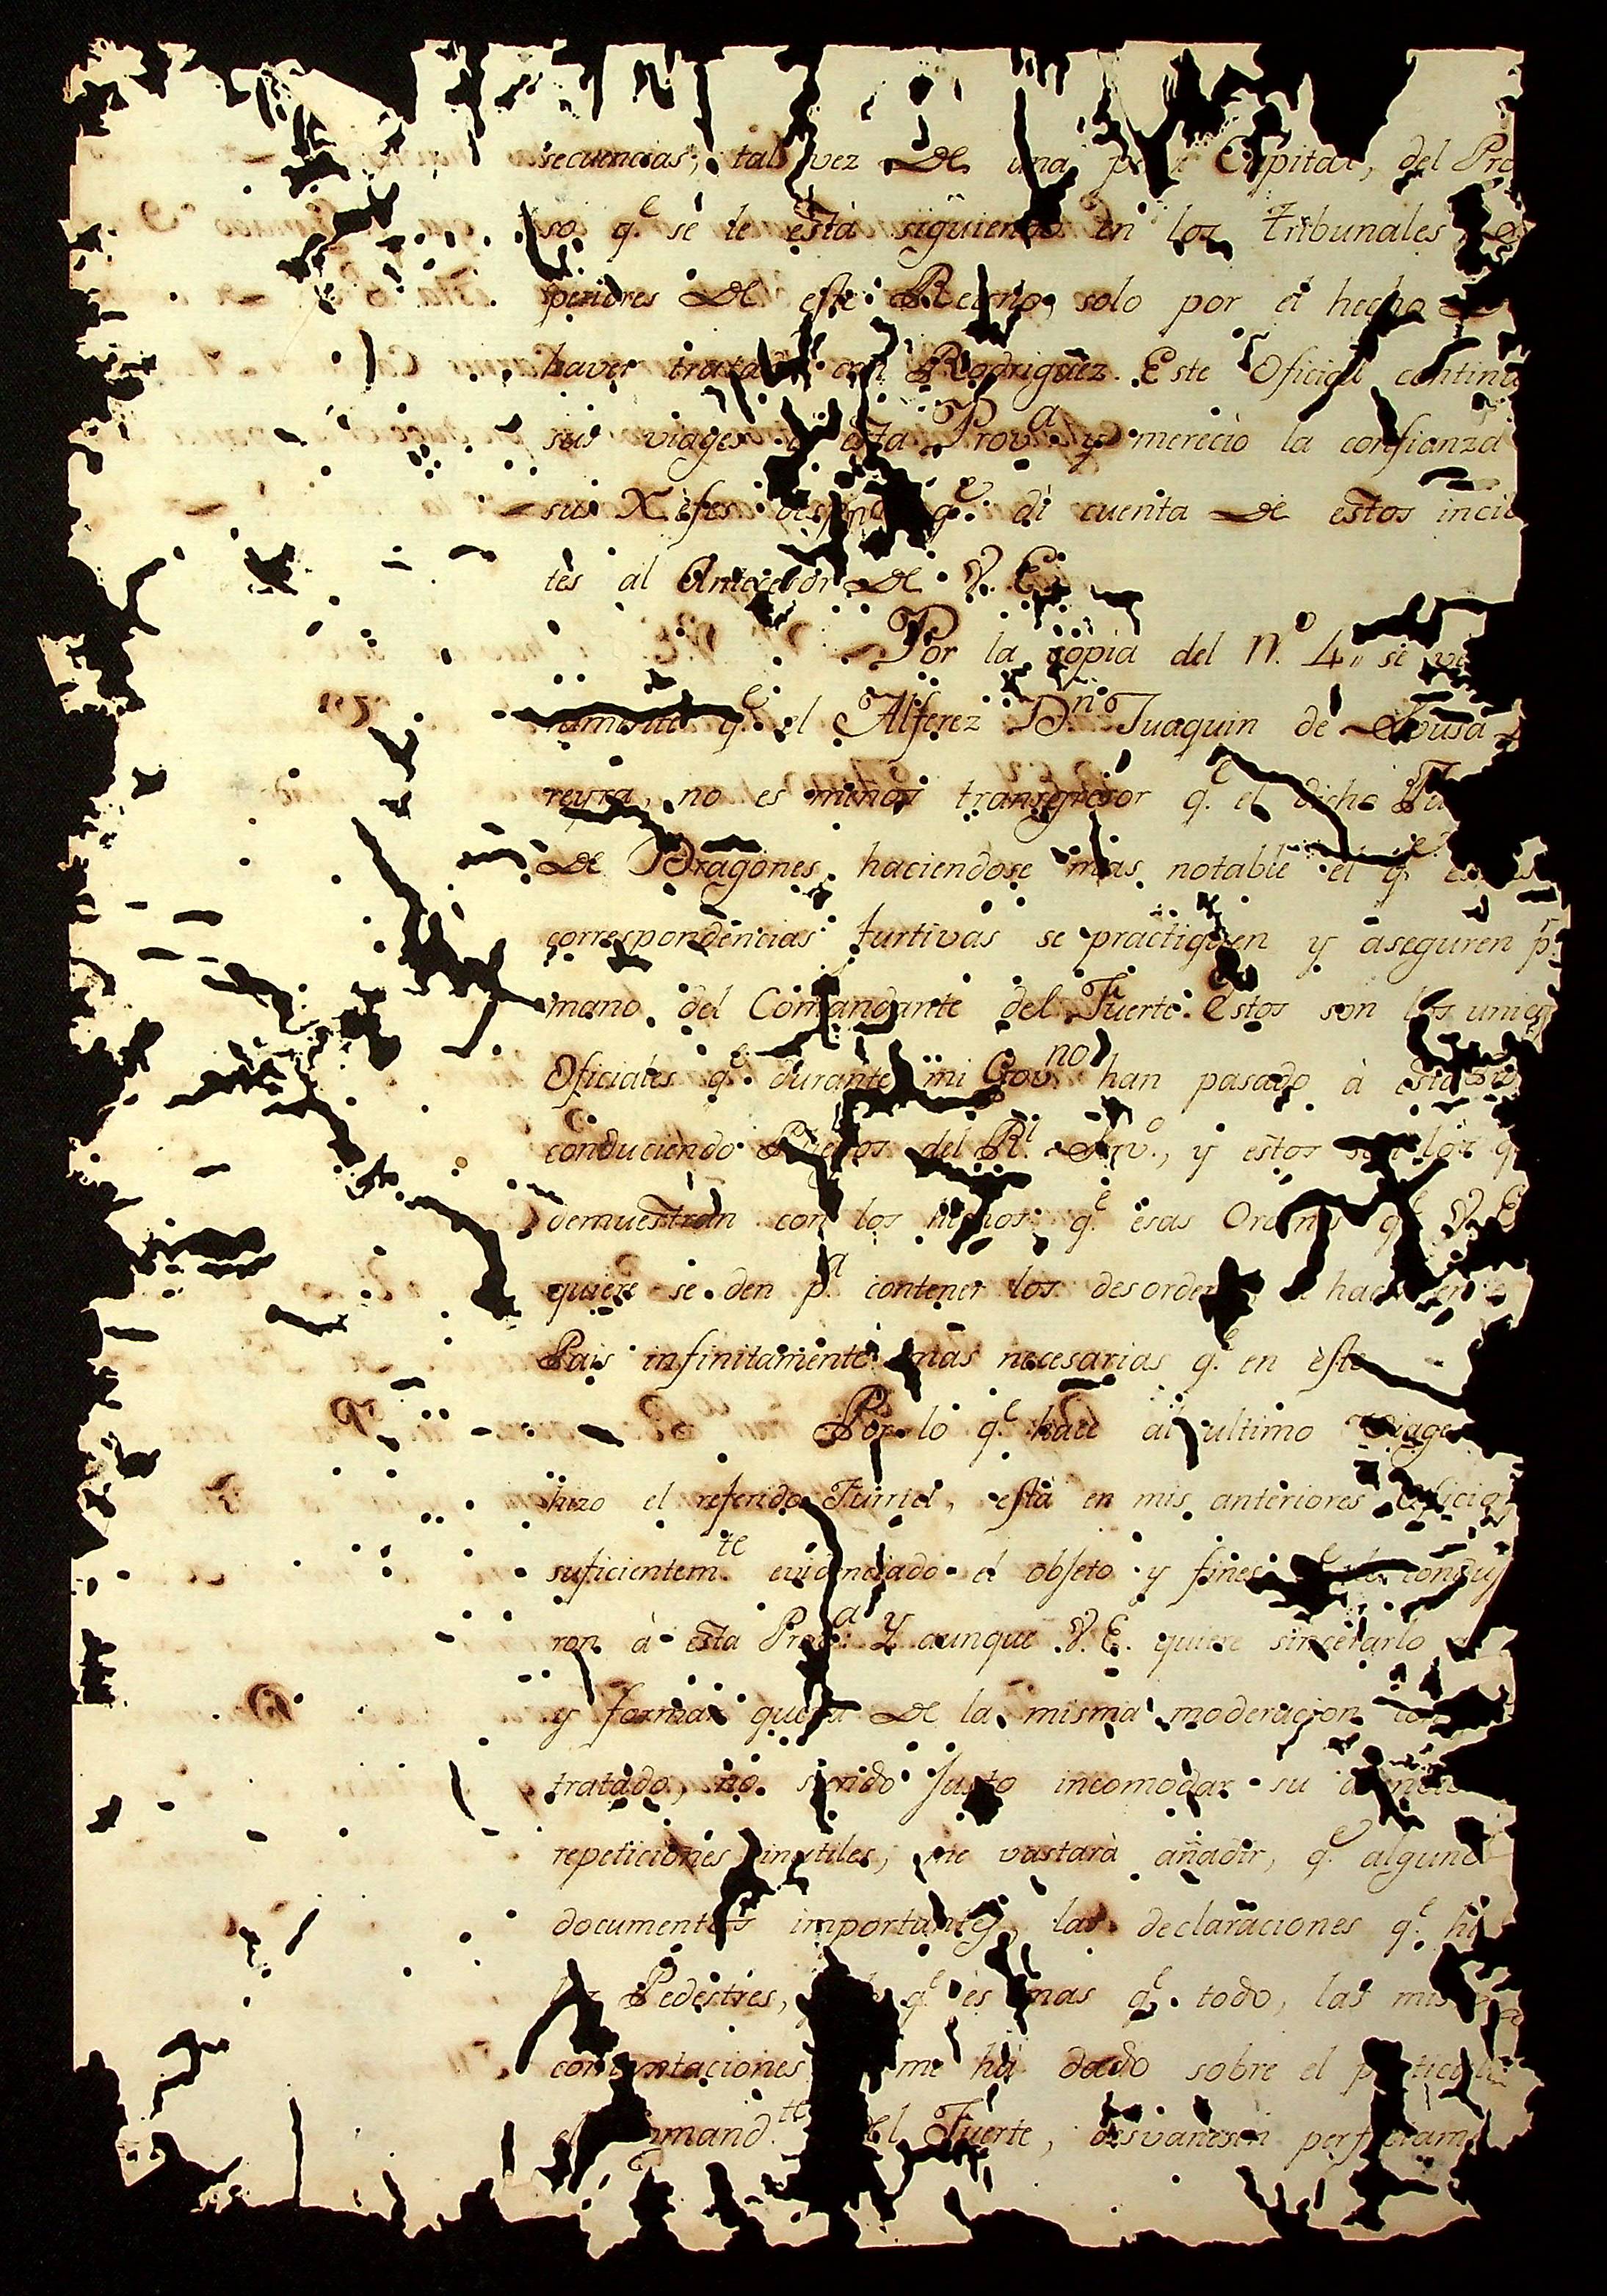 secuencias, tal vez de una Capital, del Pro
so q.e se le està siguiendo en los Tribunales
periores de este Reino, solo por el hecho
haver tratado con Rodriguez. Este Oficial continu
sus viages à esta Prov.a y mereciò la confianza
sus Xefes despues q.e di cuenta de estos incid
tes al Antecesor de V. E.
Por la copia del N.o 4,, se
q.e el Alferez D.n Juaquin de Sousa
reyra, no es menos transgresor q.e el dicho
de Dragones, haciendose mas notable el q.e
correspondencias furtivas se practiquen y aseguren p.r
mano del Comandante del Fuerte. Estos son los unicos
Oficiales q.e durante mi Gov.no han pasado à esta
conduciendo Pliegos del R.l Srv.o, y estos son los q
demuestran con los hechos, q.e esas Ordenes q.e V. E
quiere se den p.a contener los desordenes
Pais infinitamente mas necesarias q.e en este
Por lo q.e hace al ultimo viage
hizo el referido Furriel, està en mis anteriores Oficios
suficientem.te evidenciado el obJeto y fines conduJ
ron à esta Prov.a Y aunque V. E. quiere sincerarlo
y formar quexa de la misma moderacion con
tratado, no siendo Justo incomodar su
repeticiones inutiles, me vastarà añadir, q.e alguno
documentos importantes, las declaraciones q.e hi
los Pedestres, y lo q.e es mas q.e todo, las mismas
contextaciones me hà dado sobre el particular
el Comand.te del Fuerte, desvanesen perfectam